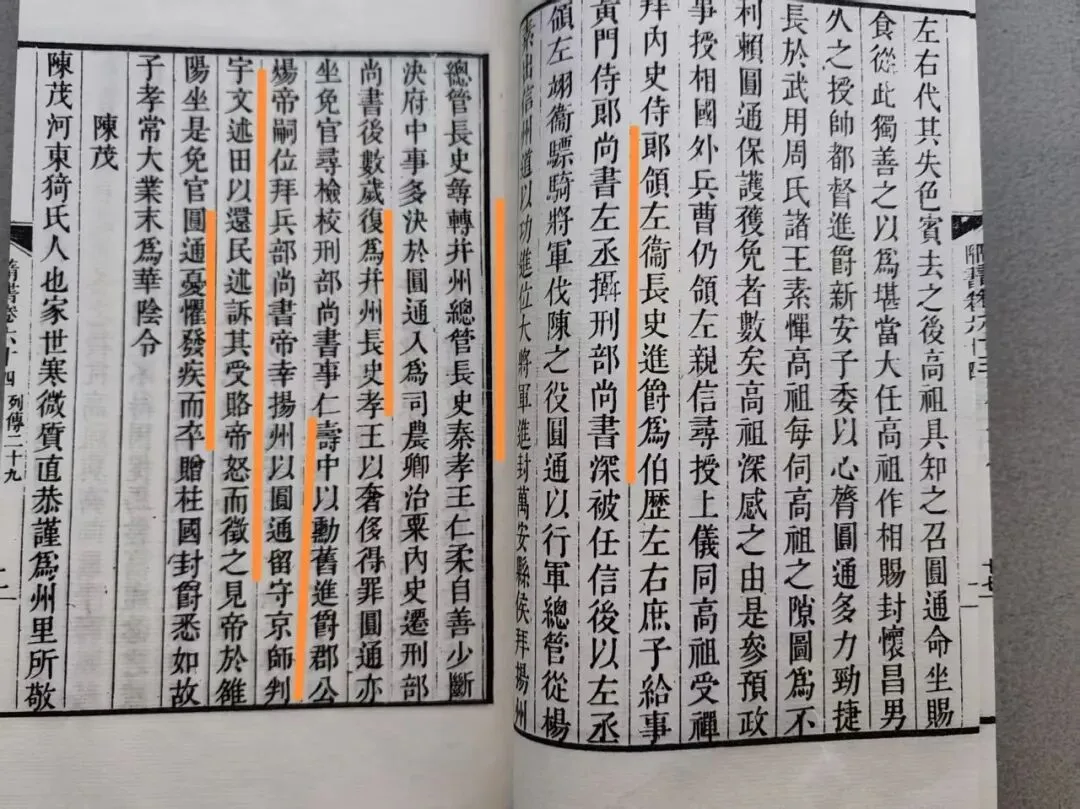 左右代其失色賓去之後高祖具知之召圓通命坐賜
食從此獨善之以為堪當大任高祖作相賜封懷昌男
久之授帥都督進爵新安子委以心膂圓通多力勁捷
長於武用周氏諸王素憚高祖每伺高祖之隙圖為不
利賴圓通保護獲免者數矣高祖深感之由是參預政
事授相國外兵曹仍領左親信尋授上儀同高祖受禪
拜內史侍郎領左衞長史進爵為伯歷左右庶子給事
黃門侍郎尚書左丞攝刑部尚書深被任信後以左丞
領左翊衞驃騎將軍伐陳之役圓通以行軍總管從楊
素出信州道以功進位大將軍進封萬安縣侯拜揚州
總管長史尋轉并州總管長史秦孝王仁柔自善少斷
決府中事多決於圓通入為司農卿治粟內史遷刑部
尚書後數歲復為并州長史孝王以奢侈得罪圓通亦
坐免官尋檢校刑部尚書事仁壽中以勳舊進爵郡公
煬帝嗣位拜兵部尚書帝幸揚州以圓通留守京師判
宇文述田以還民述訴其受賂帝怒而徵之見帝於雒
陽坐是免官圓通憂懼發疾而卒贈柱國封爵悉如故
子孝常大業末為華陰令
陳茂
陳茂河東猗氏人也家世寒微質直恭謹為州里所敬
隋書卷六十四 列傳二十九